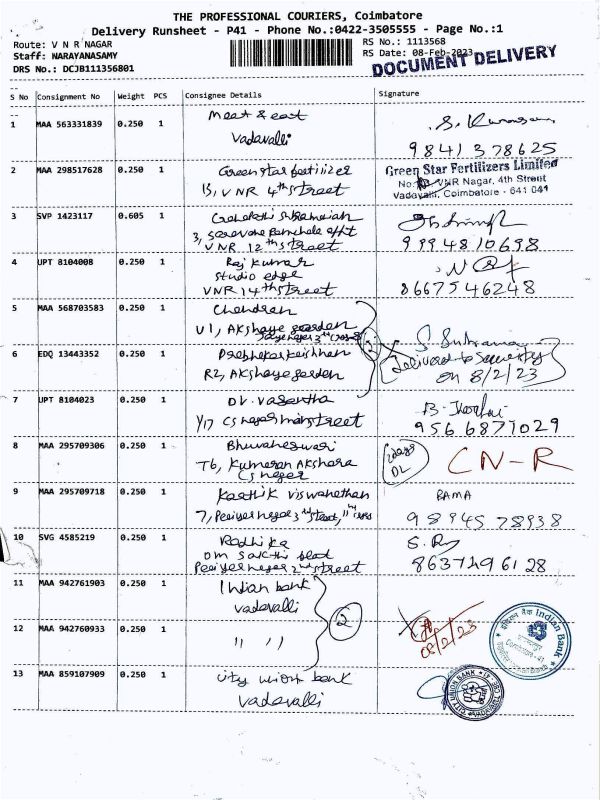 THE PROFESSIONAL COURIERS, Coimbatore
Delivery Runsheet - P41 - Phone No.:0422-3505555 - Page No.:1
Route: V N R NAGAR
Staff: NARAYANASAMY
DRS No.: DCJB111356801
RS No.: 1113568
RS Date: 08-Feb-2023
DOCUMENT DELIVERY
S No Consignment No Weight PCS Consignee Details Signature
1 MAA 563331839 0.250 1 Meat & eat
Vadavalli
S. Kumaran
9841378625
2 MAA 298517628 0.250 1 Green star fertilizer
13, VNR 4th street
Green Star Fertilizers Limited
VNR Nagar, 4th Street
Vadavalli, Coimbatore - 641 041
3 SVP 1423117 0.605 1
VNR 12th street
9994810698
4 UPT 8104008 0.250 1 Raj Kumar
Studio edge
VNR 14th street
8667546248
5 MAA 568703583 0.250 1 Chandran
U1, Akshaya garden
6 EDQ 13443352 0.250 1 Prabhakar Krishnan
R2, Akshaya garden
2
Delivered to Security
on 8/2/23
7 UPT 8104023 0.250 1 Dr. Vasantha
Y17 CS nagar main street
9566871029
8 MAA 295709306 0.250 1 Bhuvaneswari
T6, Kumaran Akshara
CS nagar
CN-R
9 MAA 295709718 0.250 1 Karthik Viswanathan
7, Periyar nagar 3rd street,
RAMA
98945 78938
10 SVG 4585219 0.250 1 Radhika
Om Sakthi
Periyar nagar 2nd street
8637496128
11 MAA 942761903 0.250 1 Indian bank
Vadavalli
12 MAA 942760933 0.250 1 " "
2
08/2/23
Indian Bank
13 MAA 859107909 0.250 1 City union bank
Vadavalli
CITY UNION BANK